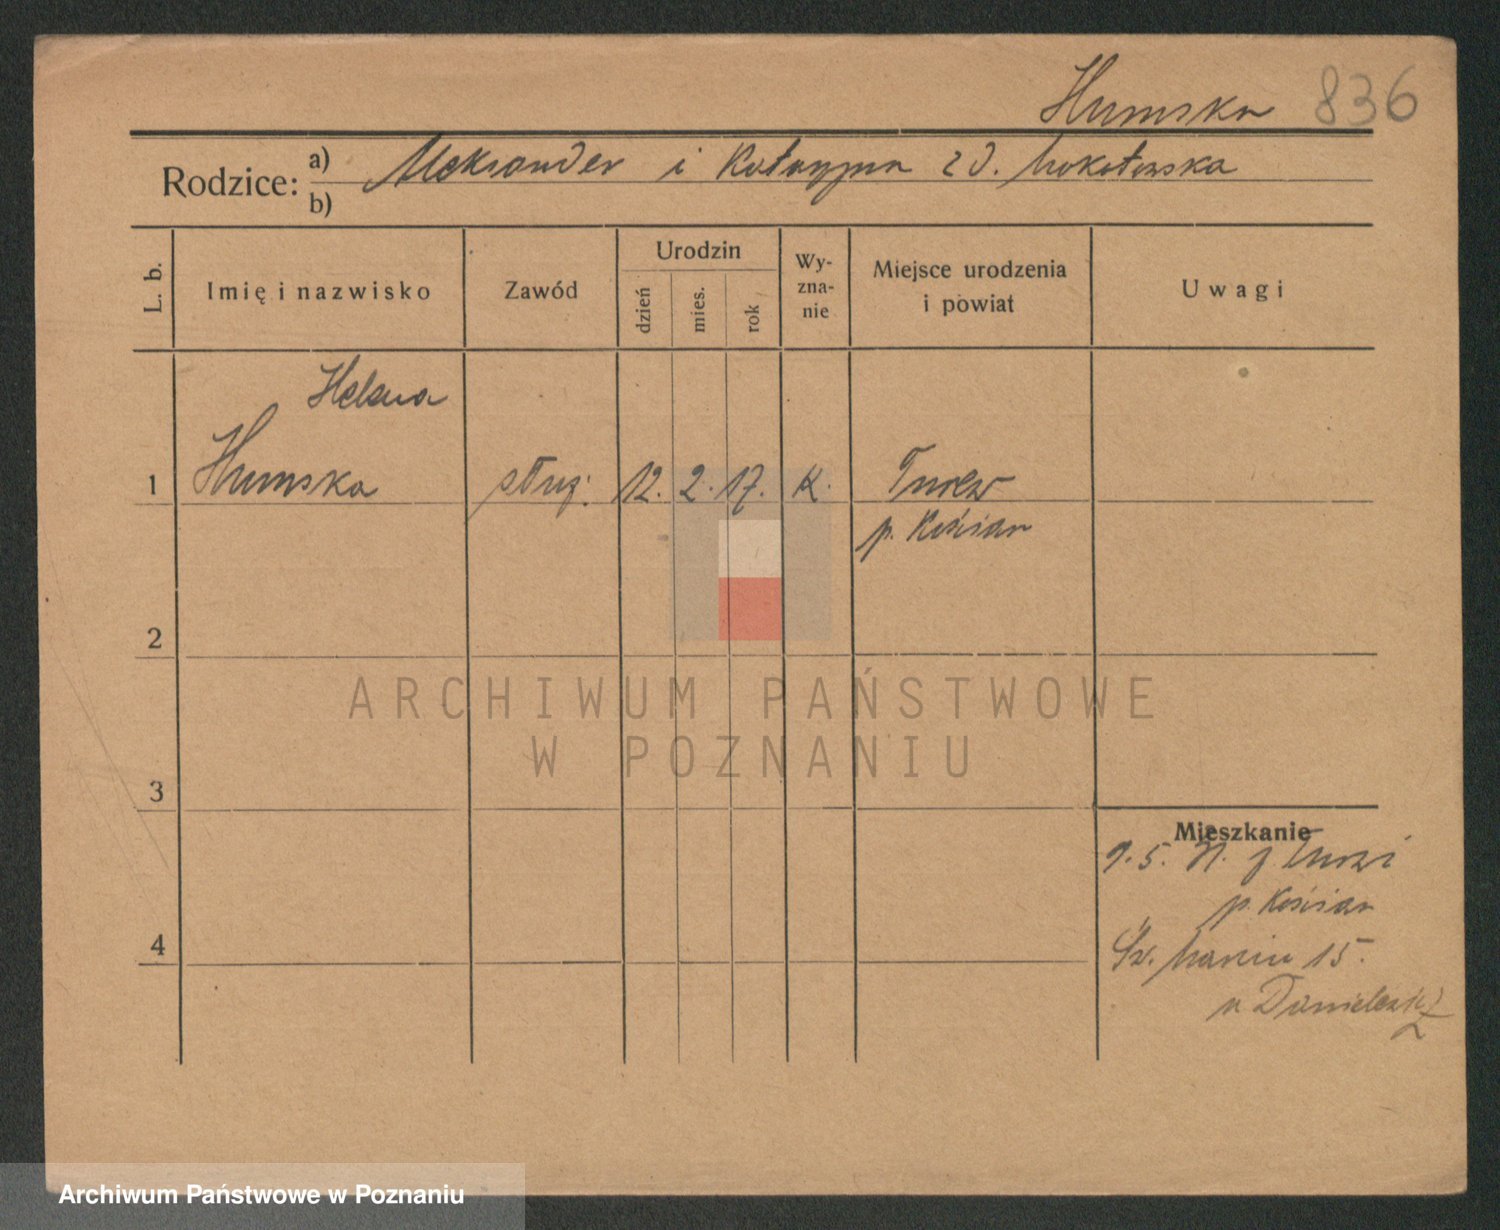 Humska 836
Rodzice: a) Aleksander i Katarzyna z d. Mokotowska
b)
L. b. Imię i nazwisko Zawód Urodzin dzień mies. rok Wy-zna-nie Miejsce urodzenia i powiat Uwagi
Helena
1 Humska służ. 12. 2. 17. K. Turew
p. Kościan
2
ARCHIWUM PAŃSTWOWE
W POZNANIU
3
Mieszkanie
9. 5. z Turwi
p. Kościan
4 Św. Marcin 15.
u
Archiwum Państwowe w Poznaniu